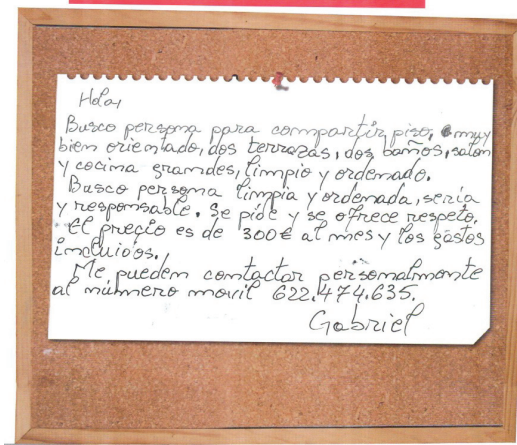 Hola,
Busco persona para compartir piso, muy
bien orientado, dos terrazas, dos baños, salon
y cocina grandes, limpio y ordenado.
Busco persona limpia y ordenada, seria
y responsable. Se pide y se ofrece respeto.
El precio es de 300€ al mes y los gastos
incluidos.
Me pueden contactar personalmente
al número movil 622.474.635.
Gabriel